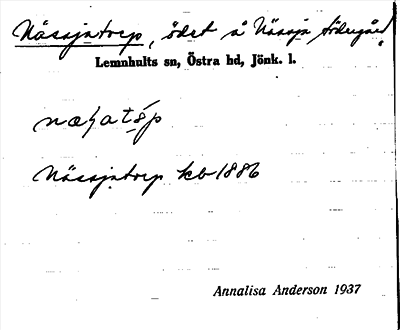 Nässjatorp, ödet å Nässja Södergård
Lemnhults sn, Östra hd, Jönk. l.
Nässjatorp kb 1886
Annalisa Anderson 1937